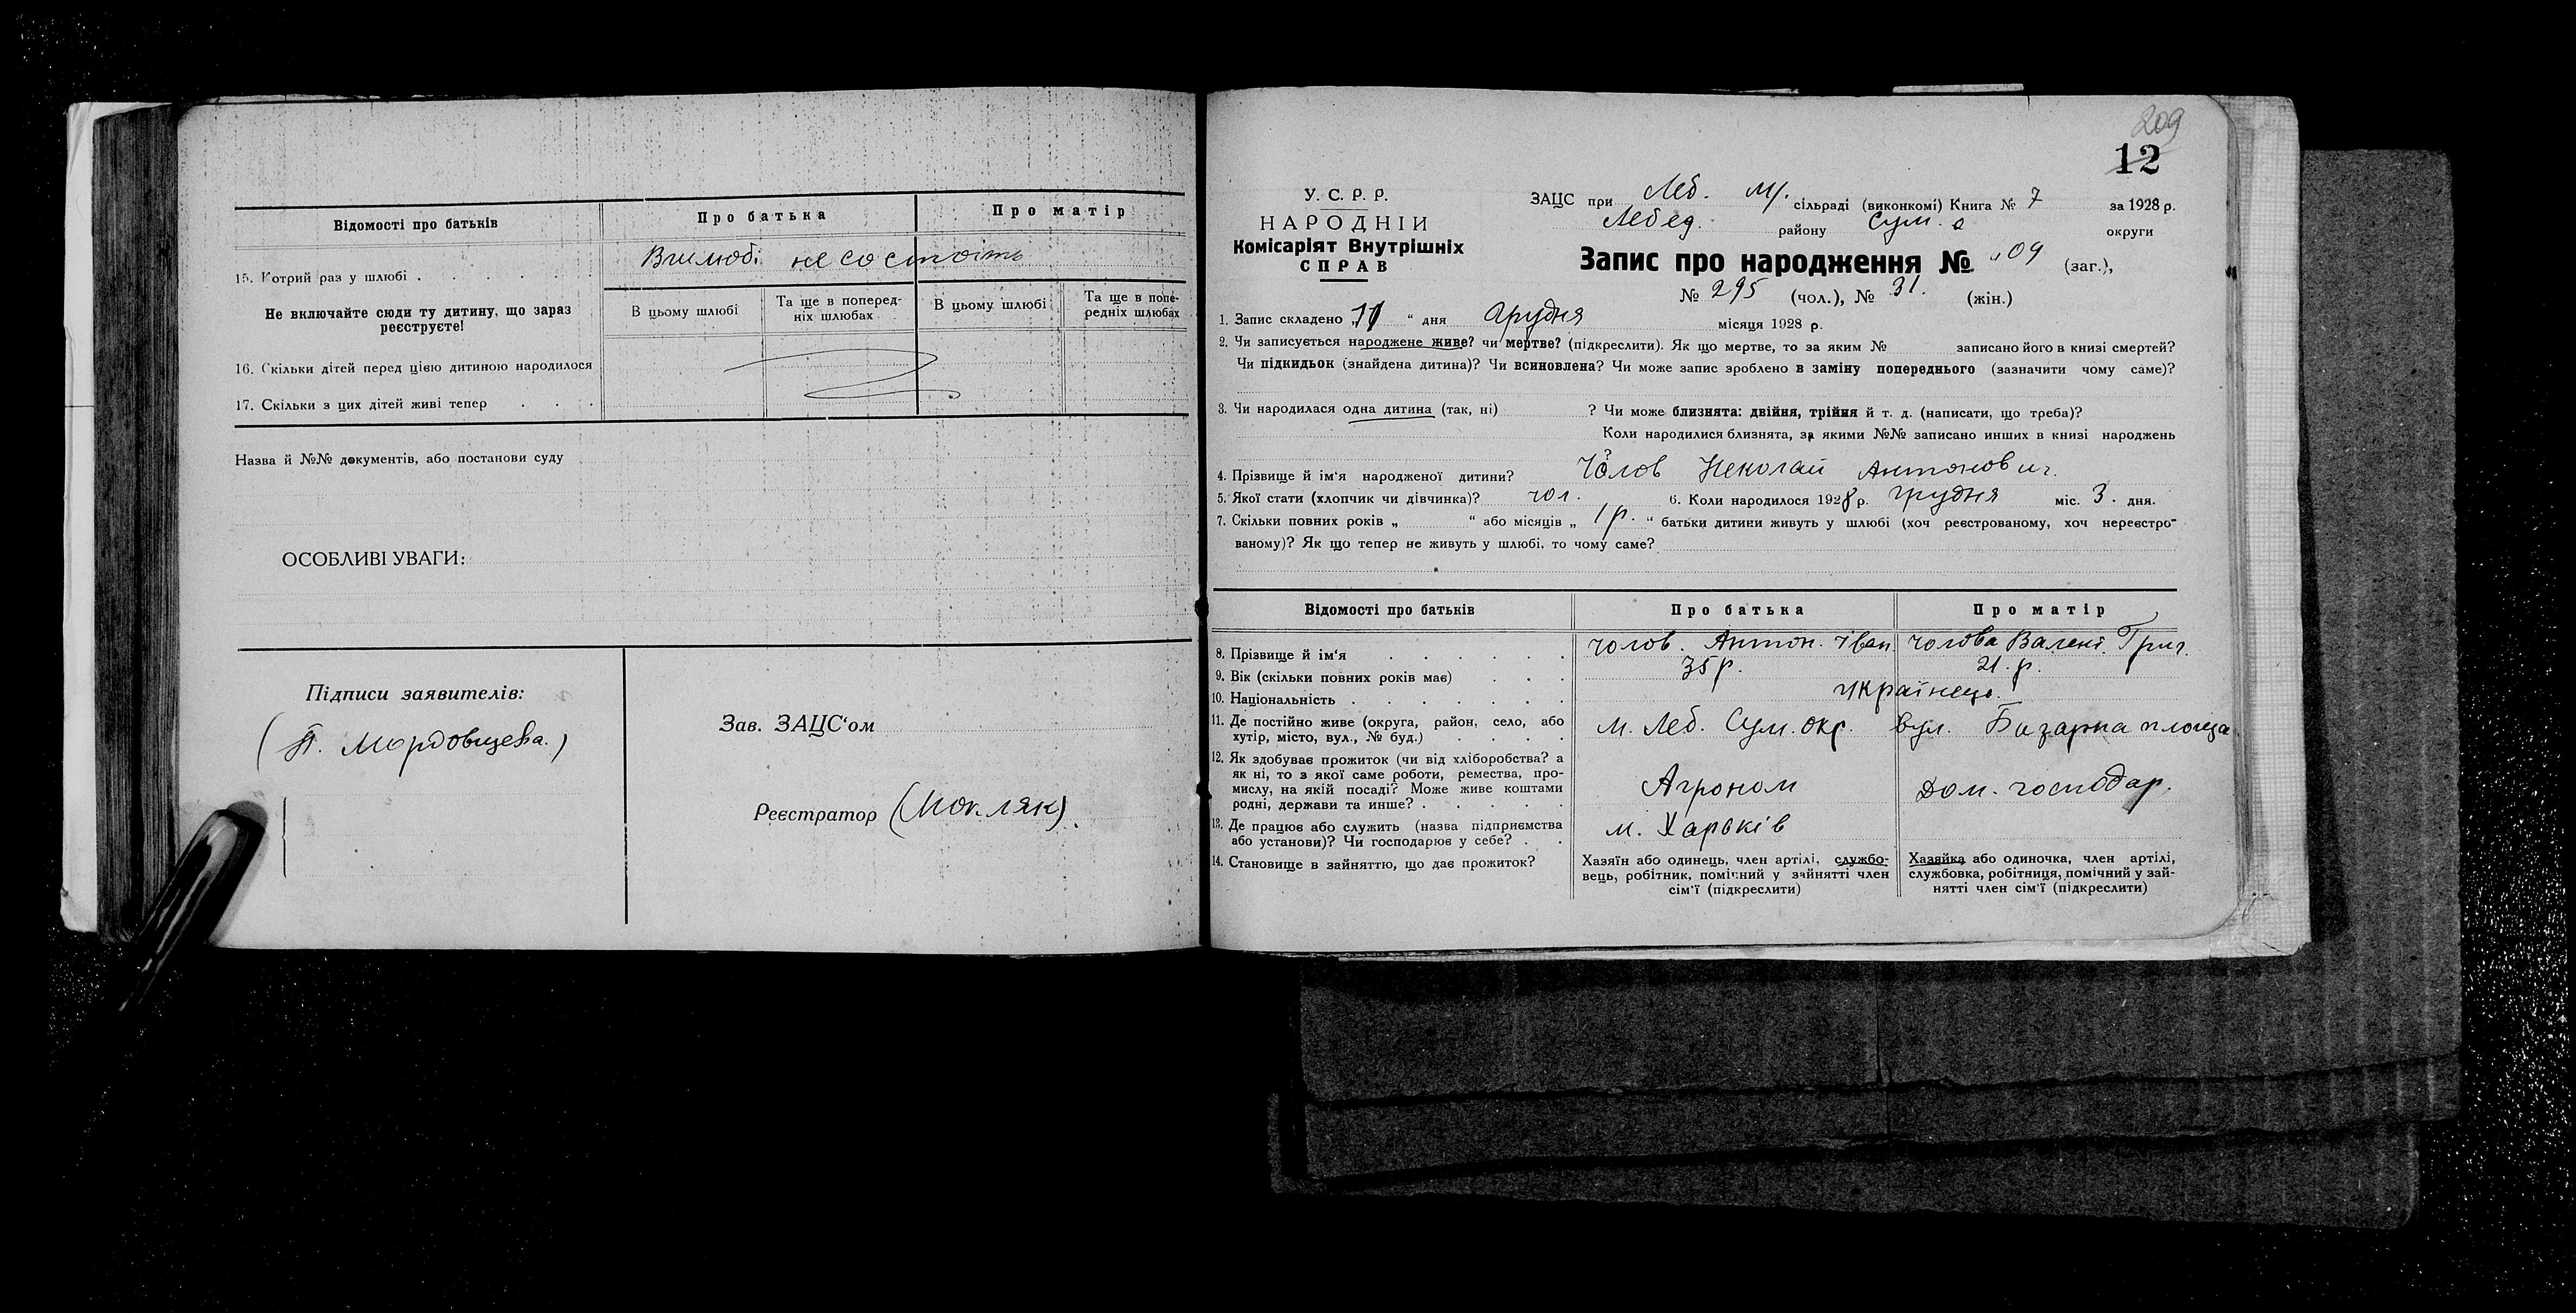 Відомості про батьків
Про батька
Про матір
15. Котрий раз у шлюбі . . . . . .
не состоїть
Не включайте сюди ту дитину, що зараз
реєструєте!
В цьому шлюбі
Та ще в поперед-
ніх шлюбах
В цьому шлюбі
Та ще в попе-
редніх шлюбах
16. Скільки дітей перед цією дитиною народилося
17. Скільки з цих дітей живі тепер . . .
Назва й №№ документів, або постанови суду
ОСОБЛИВІ УВАГИ:
Підписи заявителів:
(П. Мордовцева.)
Зав. ЗАЦС‘ом
Реєстратор (Мокляк).
209
12
У. С. Р. Р.
НАРОДНІЙ
Комісаріят Внутрішніх
СПРАВ
ЗАЦС при Леб. М. сільраді (виконкомі) Книга № 7 за 1928 р.
Лебед. району Сум. округи
Запис про народження № 09 (заг.),
№ 295 (чол.), № 31. (жін.)
1. Запис складено 11 “ дня Грудня місяця 1928 р.
2. Чи записується народжене живе? чи мертве? (підкреслити). Як що мертве, то за яким № записано його в книзі смертей?
Чи підкидьок (знайдена дитина)? Чи всиновлена? Чи може запис зроблено в заміну попереднього (зазначити чому саме)?
3. Чи народилася одна дитина (так, ні) ? Чи може близнята: двійня, трійня й т. д. (написати, що треба)?
Коли народилися близнята, за якими №№ записано инших в книзі народжень
4. Прізвище й ім‘я народженої дитини? Чолов Неколай Антонович.
5. Якої стати (хлопчик чи дівчинка)? чол. 6. Коли народилося 1928 р. грудня міс. 3. дня.
7. Скільки повних років „ “ або місяців „ 1 р. “ батьки дитини живуть у шлюбі (хоч реєстрованому, хоч нереєстро-
ваному)? Як що тепер не живуть у шлюбі, то чому саме?
Відомості про батьків
Про батька
Про матір
8. Прізвище й ім‘я . . . . . .
Чолов. Антон. Іван.
Чолова Валент. Григ.
9. Вік (скільки повних років має) . . .
35 р.
21. р.
10. Національність . . . . . . .
Українець.
11. Де постійно живе (округа, район, село, або
хутір, місто, вул., № буд.) . . . .
м. Леб. Сум. окр. вул. Базарна площа
12. Як здобуває прожиток (чи від хліборобства? а
як ні, то з якої саме роботи, ремества, про-
мислу, на якій посаді? Може живе коштами
родні, держави та инше? . . . . .
Агроном
Дом. господар.
13. Де працює або служить (назва підприємства
або установи)? Чи господарює у себе? . .
м. Харьків
14. Становище в зайняттю, що дає прожиток?
Хазяїн або одинець, член артілі, службо-
вець, робітник, помічний у зайнятті член
сім‘ї (підкреслити)
Хазяйка або одиночка, член артілі,
службовка, робітниця, помічний у зай-
нятті член сім‘ї (підкреслити)